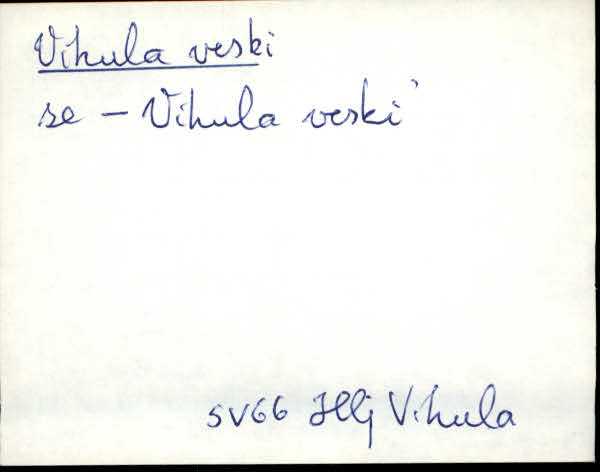 Vihula veski
se – Vihula veski'
SV66 Hlj Vihula